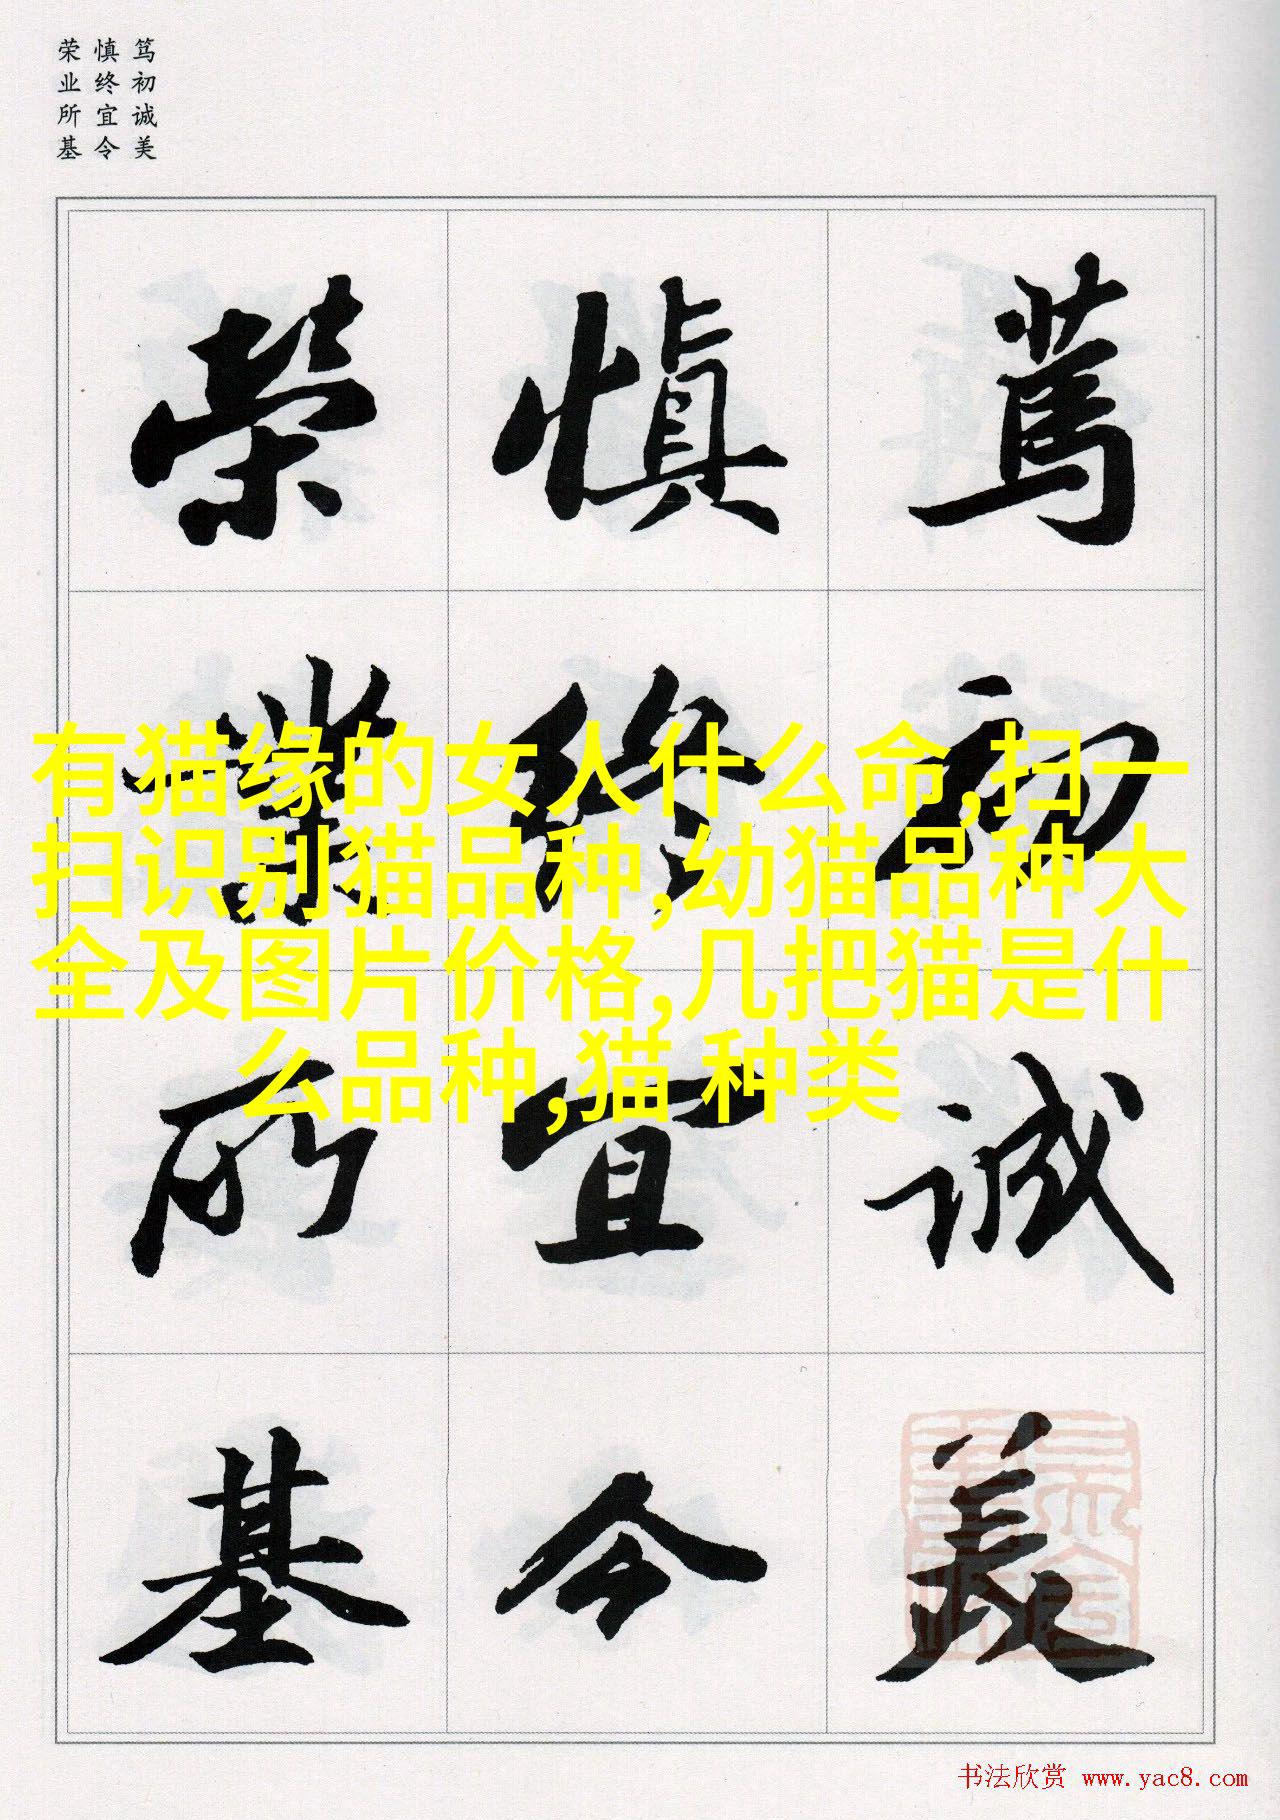 笃初诚美
慎终宜令
荣业所基
篤初诚美
慎终宜令
榮業所基
有猫缘的女人什么命,扫一
扫识别猫品种,幼猫品种大
全及图片价格,几把猫是什
么品种,猫 种类
书法欣赏 www.yac8.com